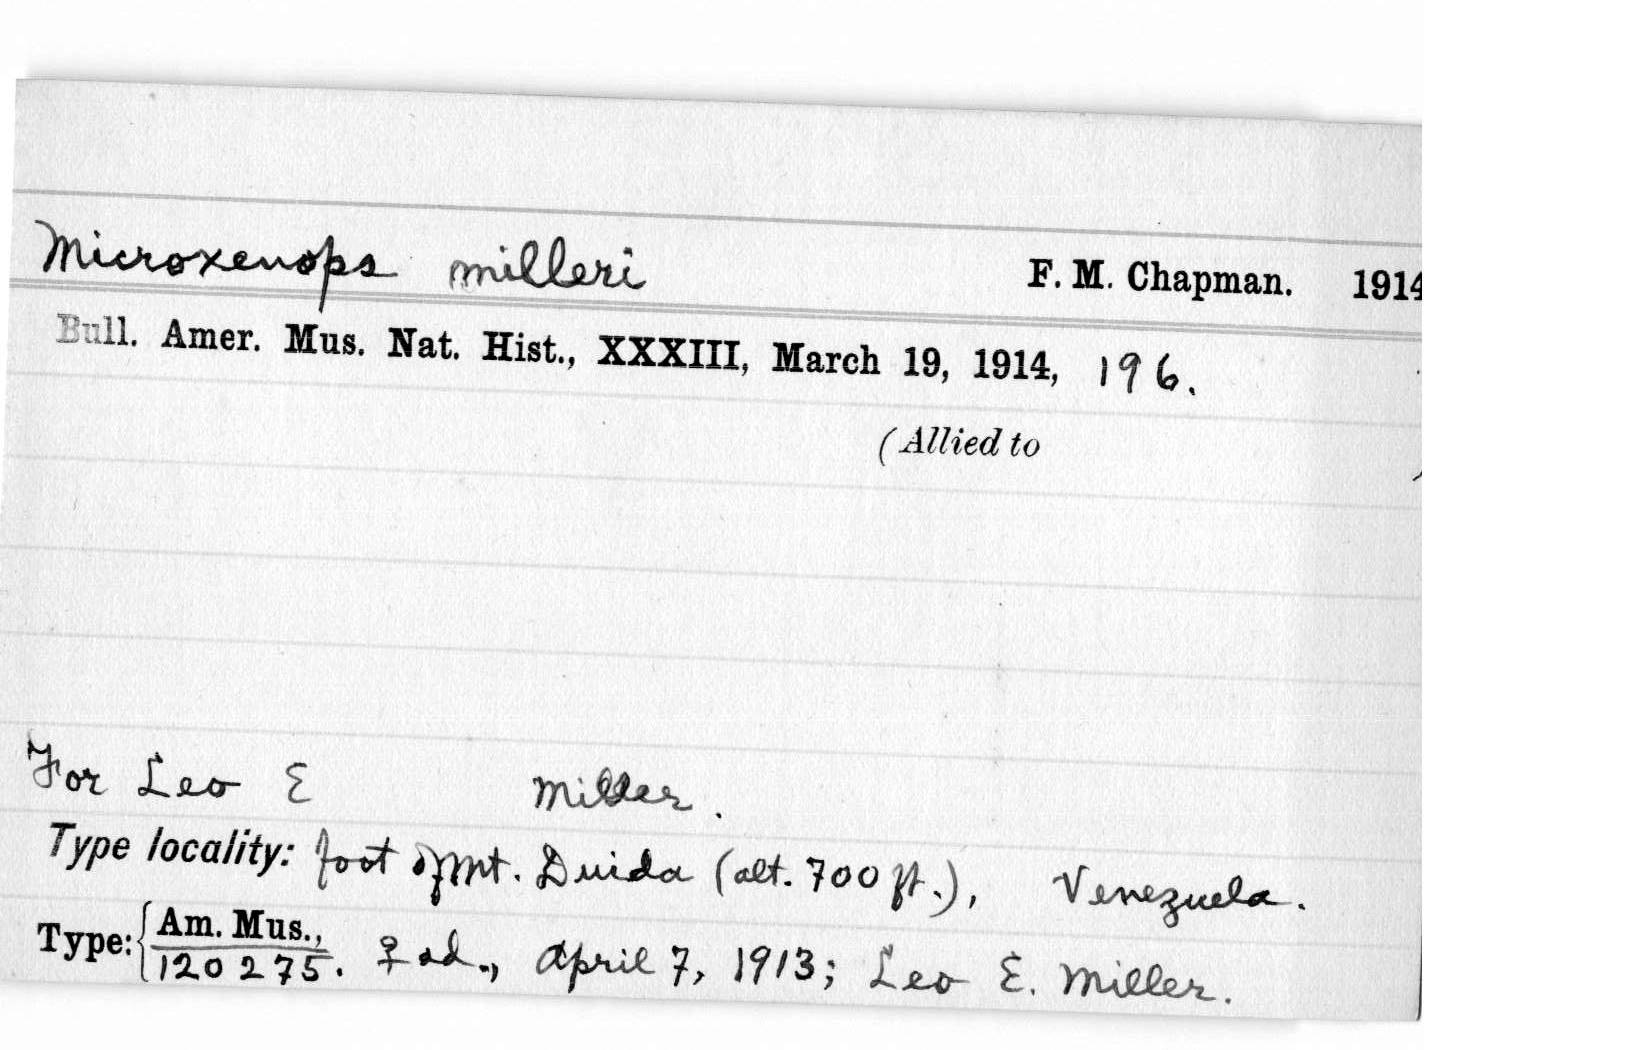 Microxenops milleri F. M. Chapman. 1914
Bull. Amer. Mus. Nat. Hist., XXXIII, March 19, 1914, 196.
(Allied to )
For Leo E Miller.
Type locality: foot of Mt. Duida (alt. 700 ft.), Venezuela.
Type: { Am. Mus.,
120275. ♀ ad., April 7, 1913; Leo E. Miller.